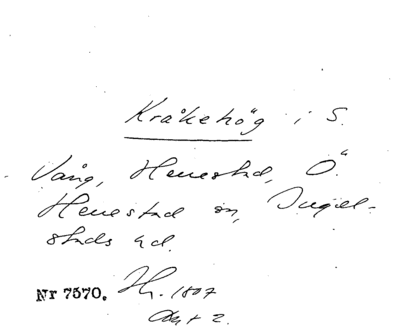 Kråkehög i S.
Vång, Henestad, Ö.
Henestad sn, Ingel-
stads hd.
Nr 7570. Hg. 1807
Akt 2.